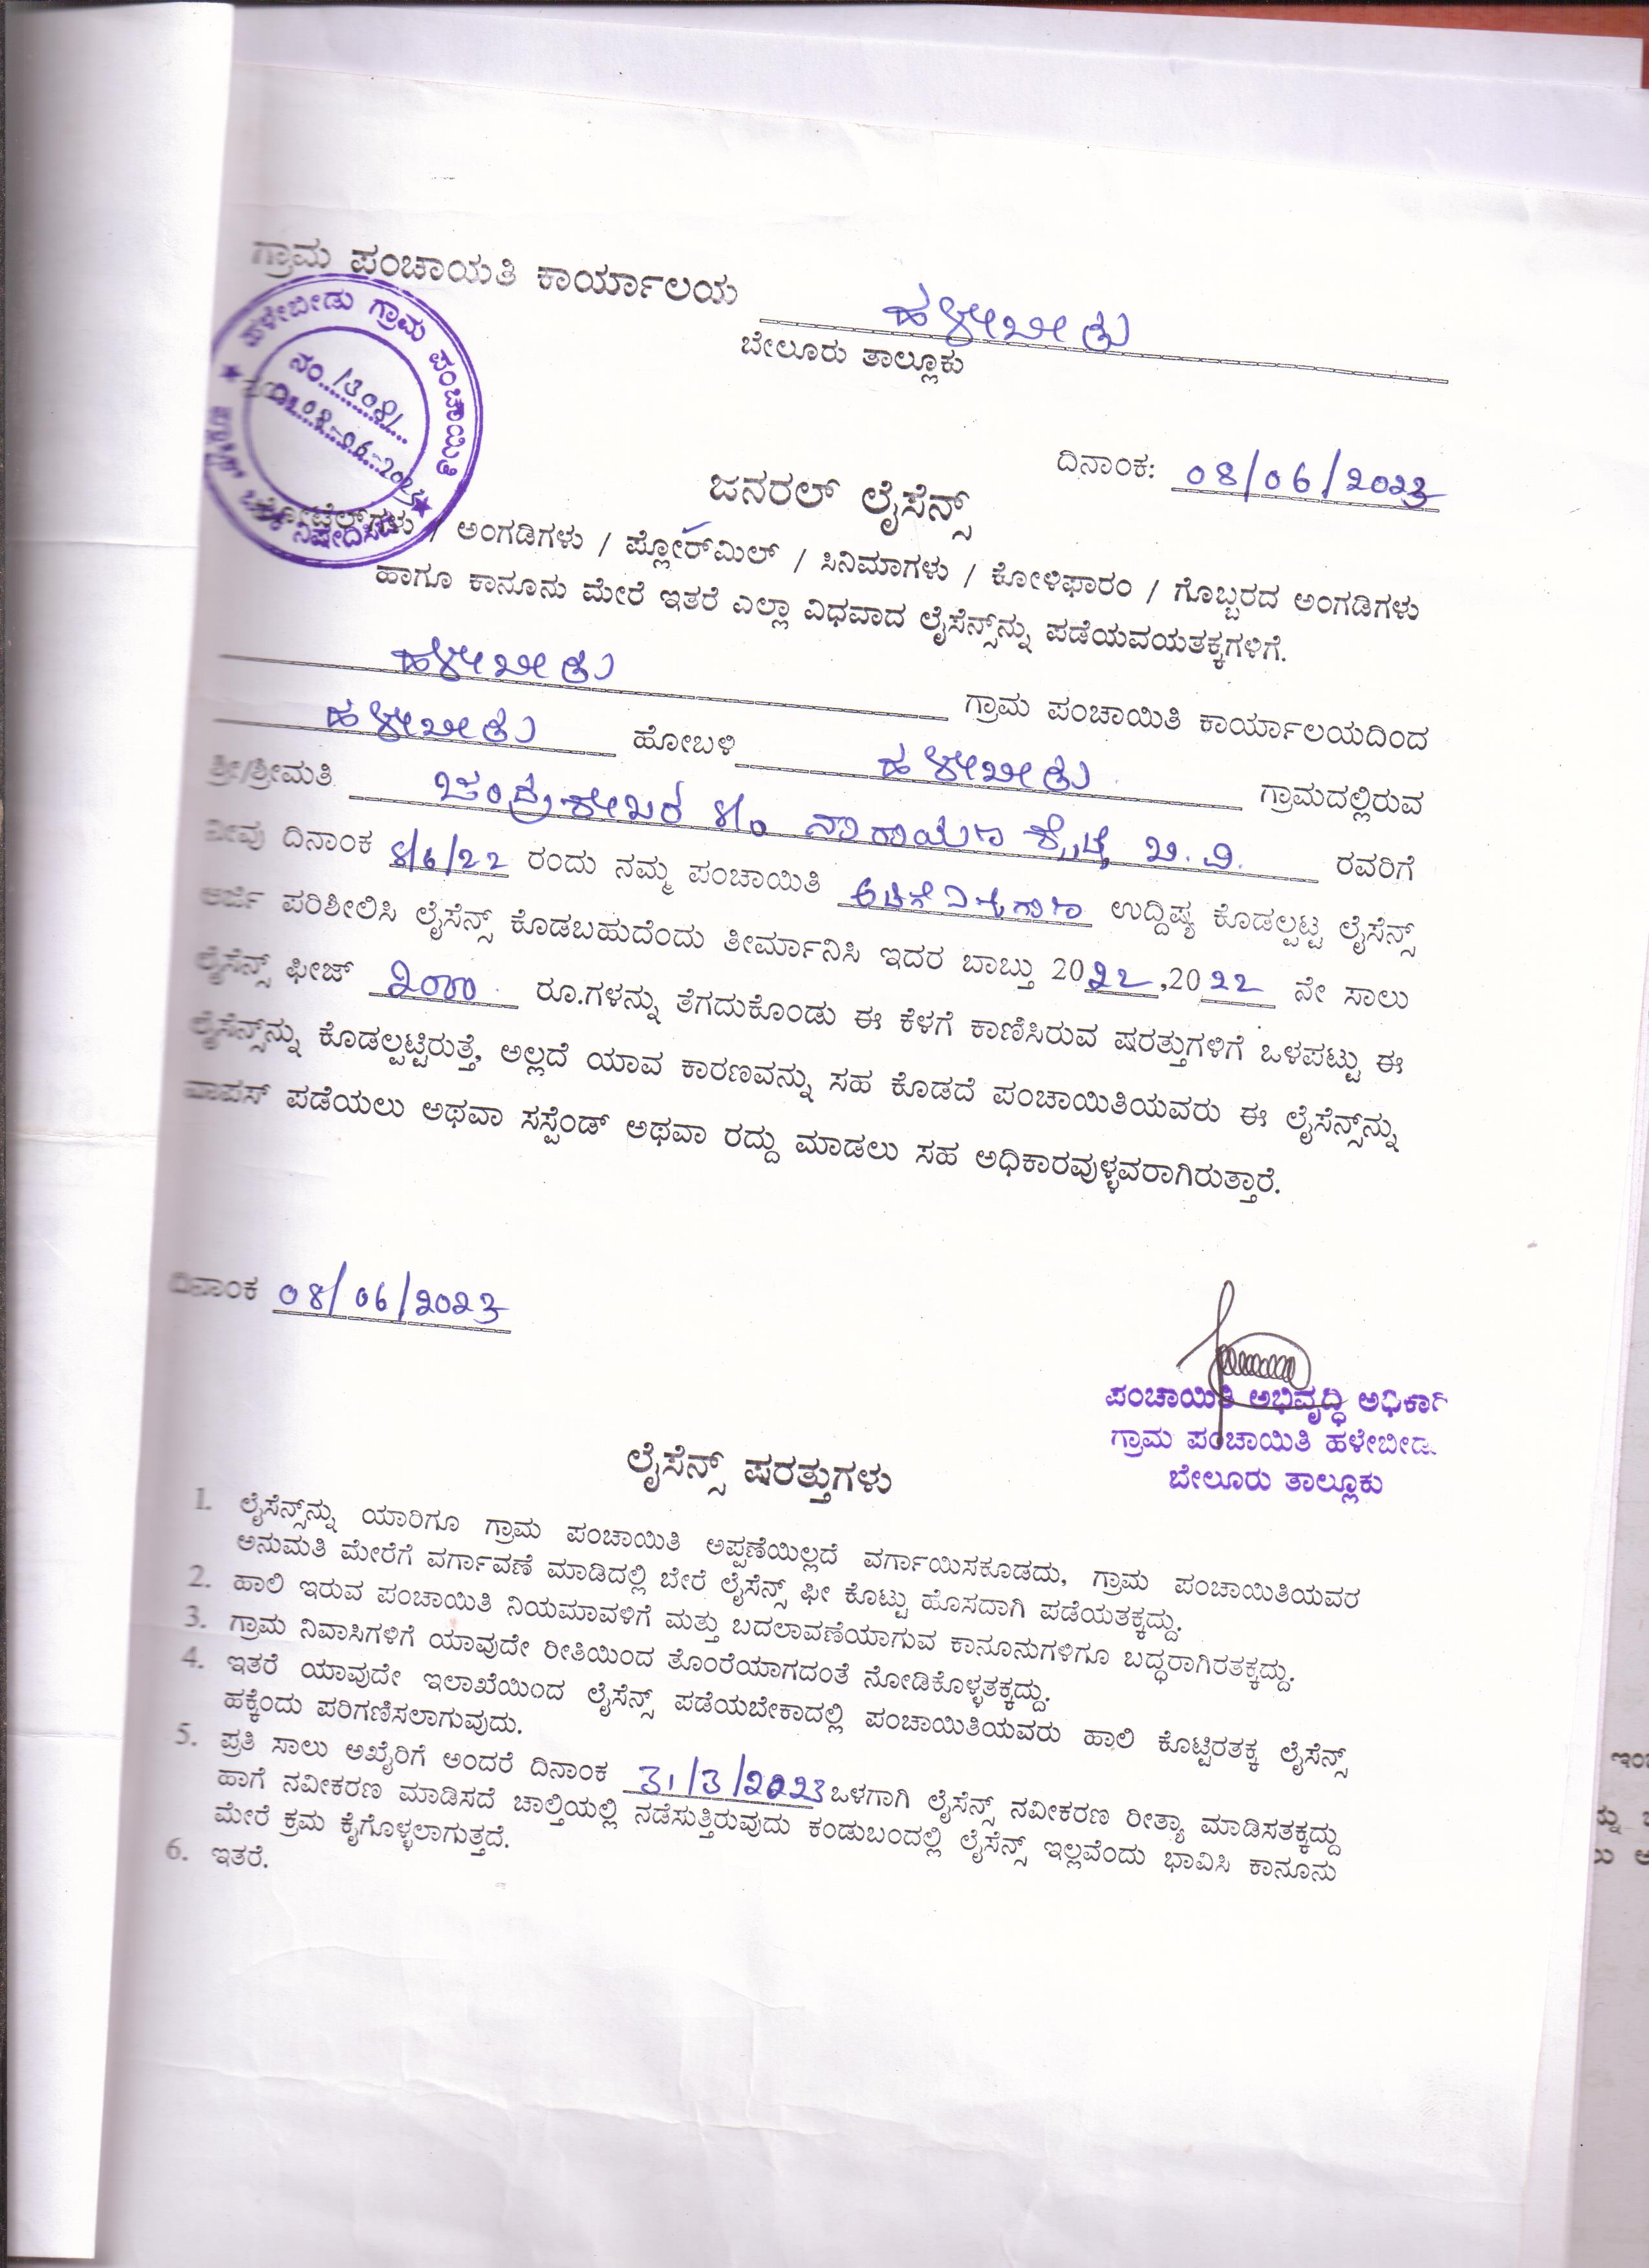 ಗ್ರಾಮ ಪಂಚಾಯತಿ ಕಾರ್ಯಾಲಯ ಹಳೇಬೀಡು
ಬೇಲೂರು ತಾಲ್ಲೂಕು
ಹಳೇಬೀಡು ಗ್ರಾಮ ಪಂಚಾಯಿತಿ
ನಂ.
08-06-2023
ನಿಷೇದಿಸಿದೆ
ದಿನಾಂಕ: 08/06/2023
ಜನರಲ್ ಲೈಸೆನ್ಸ್
ಹೋಟೆಲ್‌ಗಳು / ಅಂಗಡಿಗಳು / ಫ್ಲೋರ್‌ಮಿಲ್ / ಸಿನಿಮಾಗಳು / ಕೋಳಿಫಾರಂ / ಗೊಬ್ಬರದ ಅಂಗಡಿಗಳು
ಹಾಗೂ ಕಾನೂನು ಮೇರೆ ಇತರೆ ಎಲ್ಲಾ ವಿಧವಾದ ಲೈಸೆನ್ಸ್‌ನ್ನು ಪಡೆಯವಯತಕ್ಕಗಳಿಗೆ.
ಹಳೇಬೀಡು ಗ್ರಾಮ ಪಂಚಾಯಿತಿ ಕಾರ್ಯಾಲಯದಿಂದ
ಹಳೇಬೀಡು ಹೋಬಳಿ ಹಳೇಬೀಡು ಗ್ರಾಮದಲ್ಲಿರುವ
ಶ್ರೀ/ಶ್ರೀಮತಿ ಚಂದ್ರಶೇಖರ S/o ನಾರಾಯಣ ಶೆಟ್ಟಿ ಬಿ.ವಿ. ರವರಿಗೆ
ನೀವು ದಿನಾಂಕ 8/6/22 ರಂದು ನಮ್ಮ ಪಂಚಾಯಿತಿ ಉದ್ದಿಷ್ಯ ಕೊಡಲ್ಪಟ್ಟ ಲೈಸೆನ್ಸ್
ಅರ್ಜಿ ಪರಿಶೀಲಿಸಿ ಲೈಸೆನ್ಸ್ ಕೊಡಬಹುದೆಂದು ತೀರ್ಮಾನಿಸಿ ಇದರ ಬಾಬ್ತು 2022,2022 ನೇ ಸಾಲು
ಲೈಸೆನ್ಸ್ ಫೀಜ್ 2000 ರೂ.ಗಳನ್ನು ತೆಗದುಕೊಂಡು ಈ ಕೆಳಗೆ ಕಾಣಿಸಿರುವ ಷರತ್ತುಗಳಿಗೆ ಒಳಪಟ್ಟು ಈ
ಲೈಸೆನ್ಸ್‌ನ್ನು ಕೊಡಲ್ಪಟ್ಟಿರುತ್ತೆ, ಅಲ್ಲದೆ ಯಾವ ಕಾರಣವನ್ನು ಸಹ ಕೊಡದೆ ಪಂಚಾಯಿತಿಯವರು ಈ ಲೈಸೆನ್ಸ್‌ನ್ನು
ವಾಪಸ್ ಪಡೆಯಲು ಅಥವಾ ಸಸ್ಪೆಂಡ್ ಅಥವಾ ರದ್ದು ಮಾಡಲು ಸಹ ಅಧಿಕಾರವುಳ್ಳವರಾಗಿರುತ್ತಾರೆ.
ದಿನಾಂಕ 08/06/2023
ಪಂಚಾಯಿತಿ ಅಭಿವೃದ್ಧಿ ಅಧಿಕಾರಿ
ಗ್ರಾಮ ಪಂಚಾಯಿತಿ ಹಳೇಬೀಡು
ಬೇಲೂರು ತಾಲ್ಲೂಕು
ಲೈಸೆನ್ಸ್ ಷರತ್ತುಗಳು
1. ಲೈಸೆನ್ಸ್‌ನ್ನು ಯಾರಿಗೂ ಗ್ರಾಮ ಪಂಚಾಯಿತಿ ಅಪ್ಪಣೆಯಿಲ್ಲದೆ ವರ್ಗಾಯಿಸಕೂಡದು, ಗ್ರಾಮ ಪಂಚಾಯಿತಿಯವರ
ಅನುಮತಿ ಮೇರೆಗೆ ವರ್ಗಾವಣೆ ಮಾಡಿದಲ್ಲಿ ಬೇರೆ ಲೈಸೆನ್ಸ್ ಫೀ ಕೊಟ್ಟು ಹೊಸದಾಗಿ ಪಡೆಯತಕ್ಕದ್ದು.
2. ಹಾಲಿ ಇರುವ ಪಂಚಾಯಿತಿ ನಿಯಮಾವಳಿಗೆ ಮತ್ತು ಬದಲಾವಣೆಯಾಗುವ ಕಾನೂನುಗಳಿಗೂ ಬದ್ಧರಾಗಿರತಕ್ಕದ್ದು.
3. ಗ್ರಾಮ ನಿವಾಸಿಗಳಿಗೆ ಯಾವುದೇ ರೀತಿಯಿಂದ ತೊಂರೆಯಾಗದಂತೆ ನೋಡಿಕೊಳ್ಳತಕ್ಕದ್ದು.
4. ಇತರೆ ಯಾವುದೇ ಇಲಾಖೆಯಿಂದ ಲೈಸೆನ್ಸ್ ಪಡೆಯಬೇಕಾದಲ್ಲಿ ಪಂಚಾಯಿತಿಯವರು ಹಾಲಿ ಕೊಟ್ಟಿರತಕ್ಕ ಲೈಸೆನ್ಸ್
ಹಕ್ಕೆಂದು ಪರಿಗಣಿಸಲಾಗುವುದು.
5. ಪ್ರತಿ ಸಾಲು ಅಖೈರಿಗೆ ಅಂದರೆ ದಿನಾಂಕ 31/3/2023 ಒಳಗಾಗಿ ಲೈಸೆನ್ಸ್ ನವೀಕರಣ ರೀತ್ಯಾ ಮಾಡಿಸತಕ್ಕದ್ದು
ಹಾಗೆ ನವೀಕರಣ ಮಾಡಿಸದೆ ಚಾಲ್ತಿಯಲ್ಲಿ ನಡೆಸುತ್ತಿರುವುದು ಕಂಡುಬಂದಲ್ಲಿ ಲೈಸೆನ್ಸ್ ಇಲ್ಲವೆಂದು ಭಾವಿಸಿ ಕಾನೂನು
ಮೇರೆ ಕ್ರಮ ಕೈಗೊಳ್ಳಲಾಗುತ್ತದೆ.
6. ಇತರೆ.